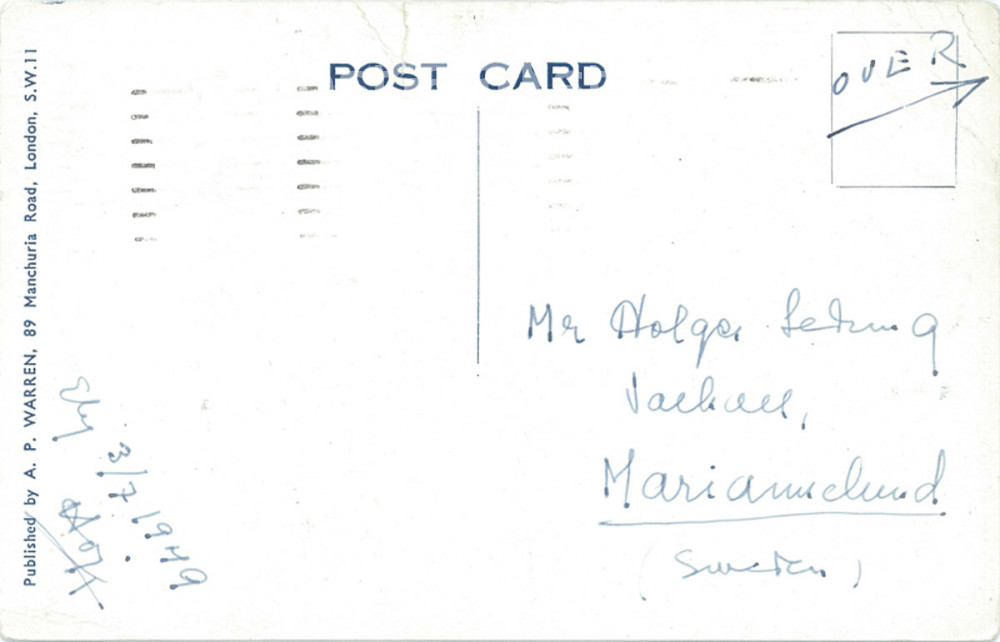 POST CARD
OVER
Published by A. P. WARREN, 89 Manchuria Road, London, S.W.11
3/7 1949
Mr Holger
Mariannelund
(Sweden)